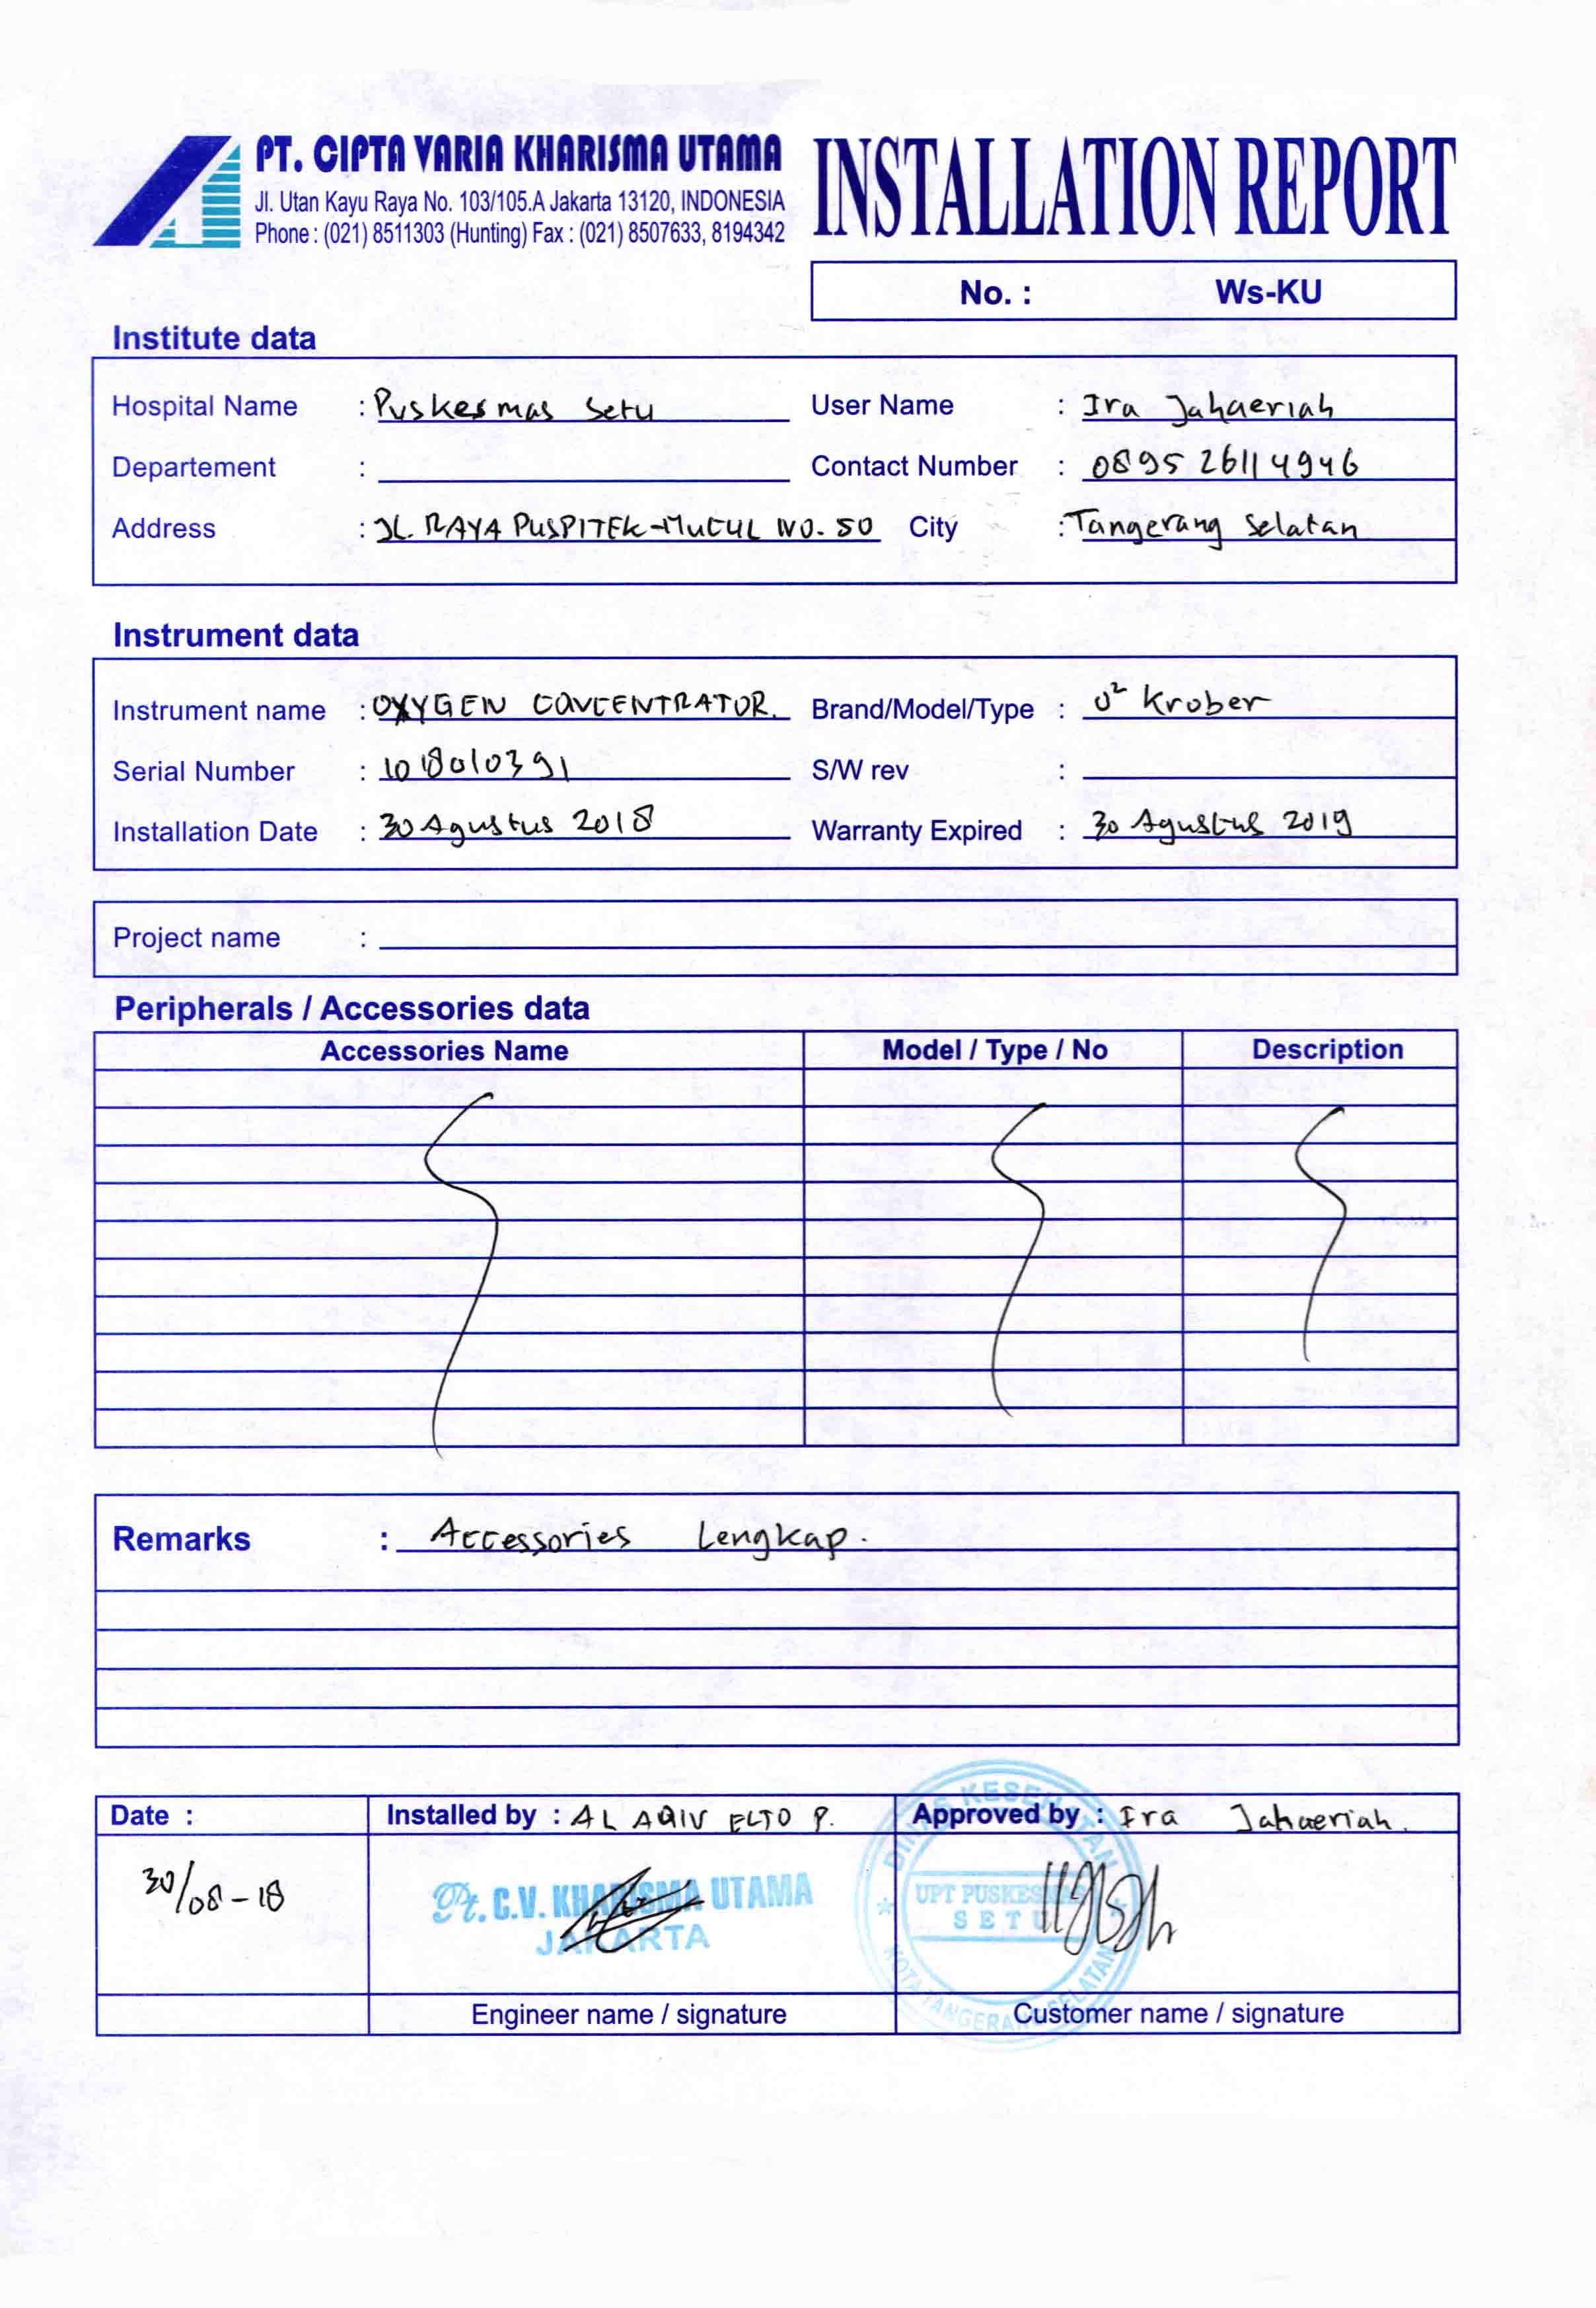 PT. CIPTA VARIA KHARISMA UTAMA
Jl. Utan Kayu Raya No. 103/105.A Jakarta 13120, INDONESIA
Phone : (021) 8511303 (Hunting) Fax : (021) 8507633, 8194342
INSTALLATION REPORT
No. : Ws-KU
Institute data
Hospital Name : Puskesmas Setu User Name : Ira Jahaeriah
Departement : Contact Number : 0895 2611 4946
Address : JL. RAYA PUSPITEK-MUCUL NO. 50 City : Tangerang Selatan
Instrument data
Instrument name : OXYGEN CONCENTRATOR. Brand/Model/Type : O² Krober
Serial Number : 1018010391 S/W rev :
Installation Date : 30 Agustus 2018 Warranty Expired : 30 Agustus 2019
Project name :
Peripherals / Accessories data
Accessories Name Model / Type / No Description
Remarks : Accessories Lengkap.
Date : Installed by : AL AQIV ELTO P. Approved by : Ira Jahaeriah.
30/08-18
Pt. C.V. KHARISMA UTAMA
JAKARTA
DINAS KESEHATAN
UPT PUSKESMAS
SETU
KOTA TANGERANG SELATAN
Engineer name / signature Customer name / signature